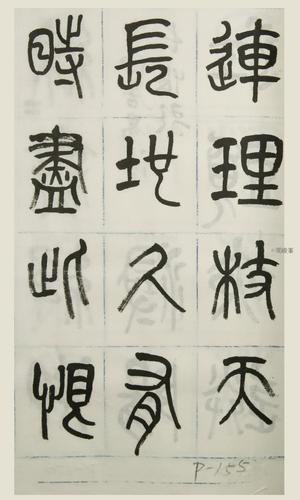 連理枝天
長地久有
時盡此恨
P-155